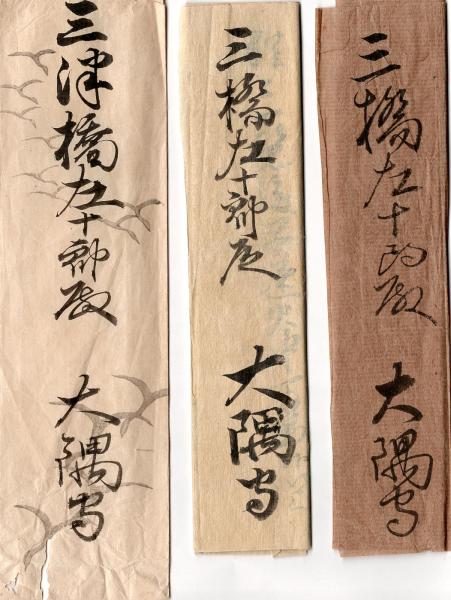 三橋左十郎殿 大隅守
三橋左十郎殿 大隅守
三津橋左十郎殿 大隅守